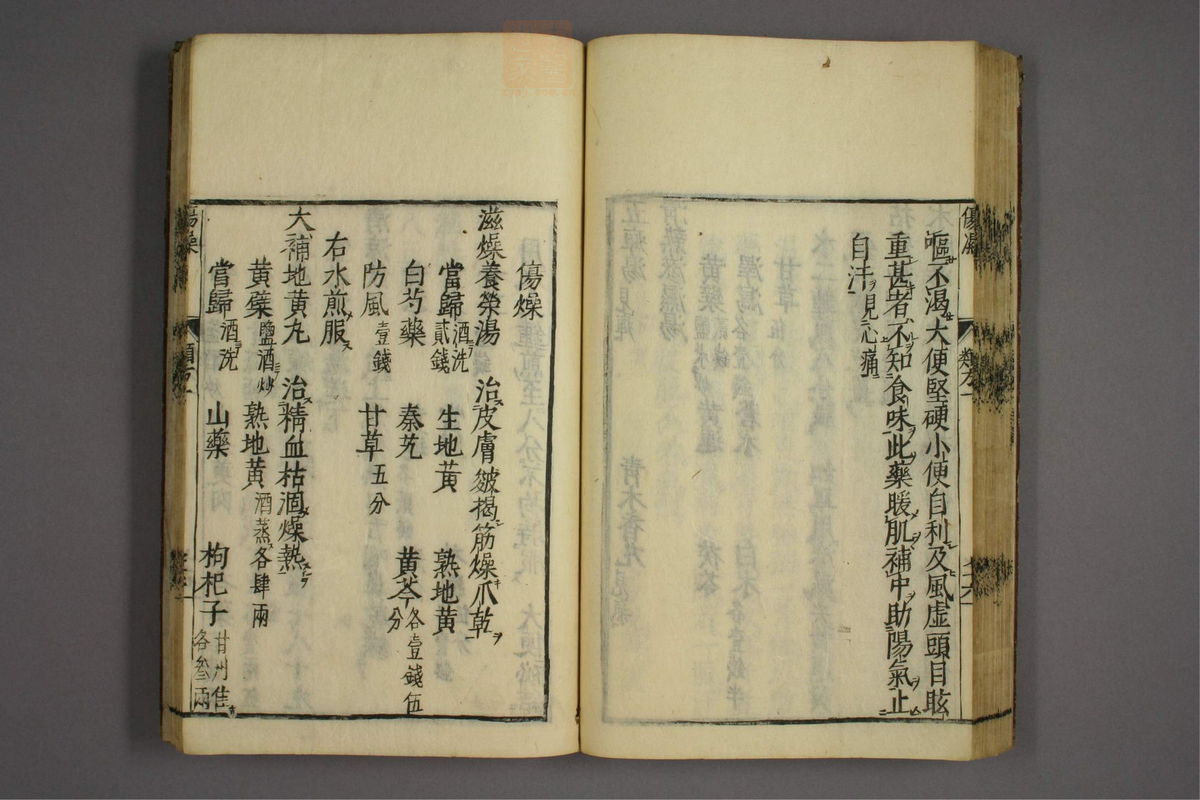 傷濕
嘔不渴大便堅硬小便自利及風虛頭目眩
重甚者不知食味此藥暖肌補中助陽氣止
自汗見心痛
類方一
傷燥
滋燥養榮湯 治皮膚皴揭筋燥爪乾
當歸酒洗貳錢 生地黃 熟地黃
白芍藥 秦艽 黃芩各壹錢伍分
防風壹錢 甘草五分
右水煎服
大補地黃丸 治精血枯涸燥熱
黃蘗鹽酒炒 熟地黃酒蒸各肆兩
當歸酒洗 山藥 枸杞子甘州佳各叄兩
傷燥
類方一